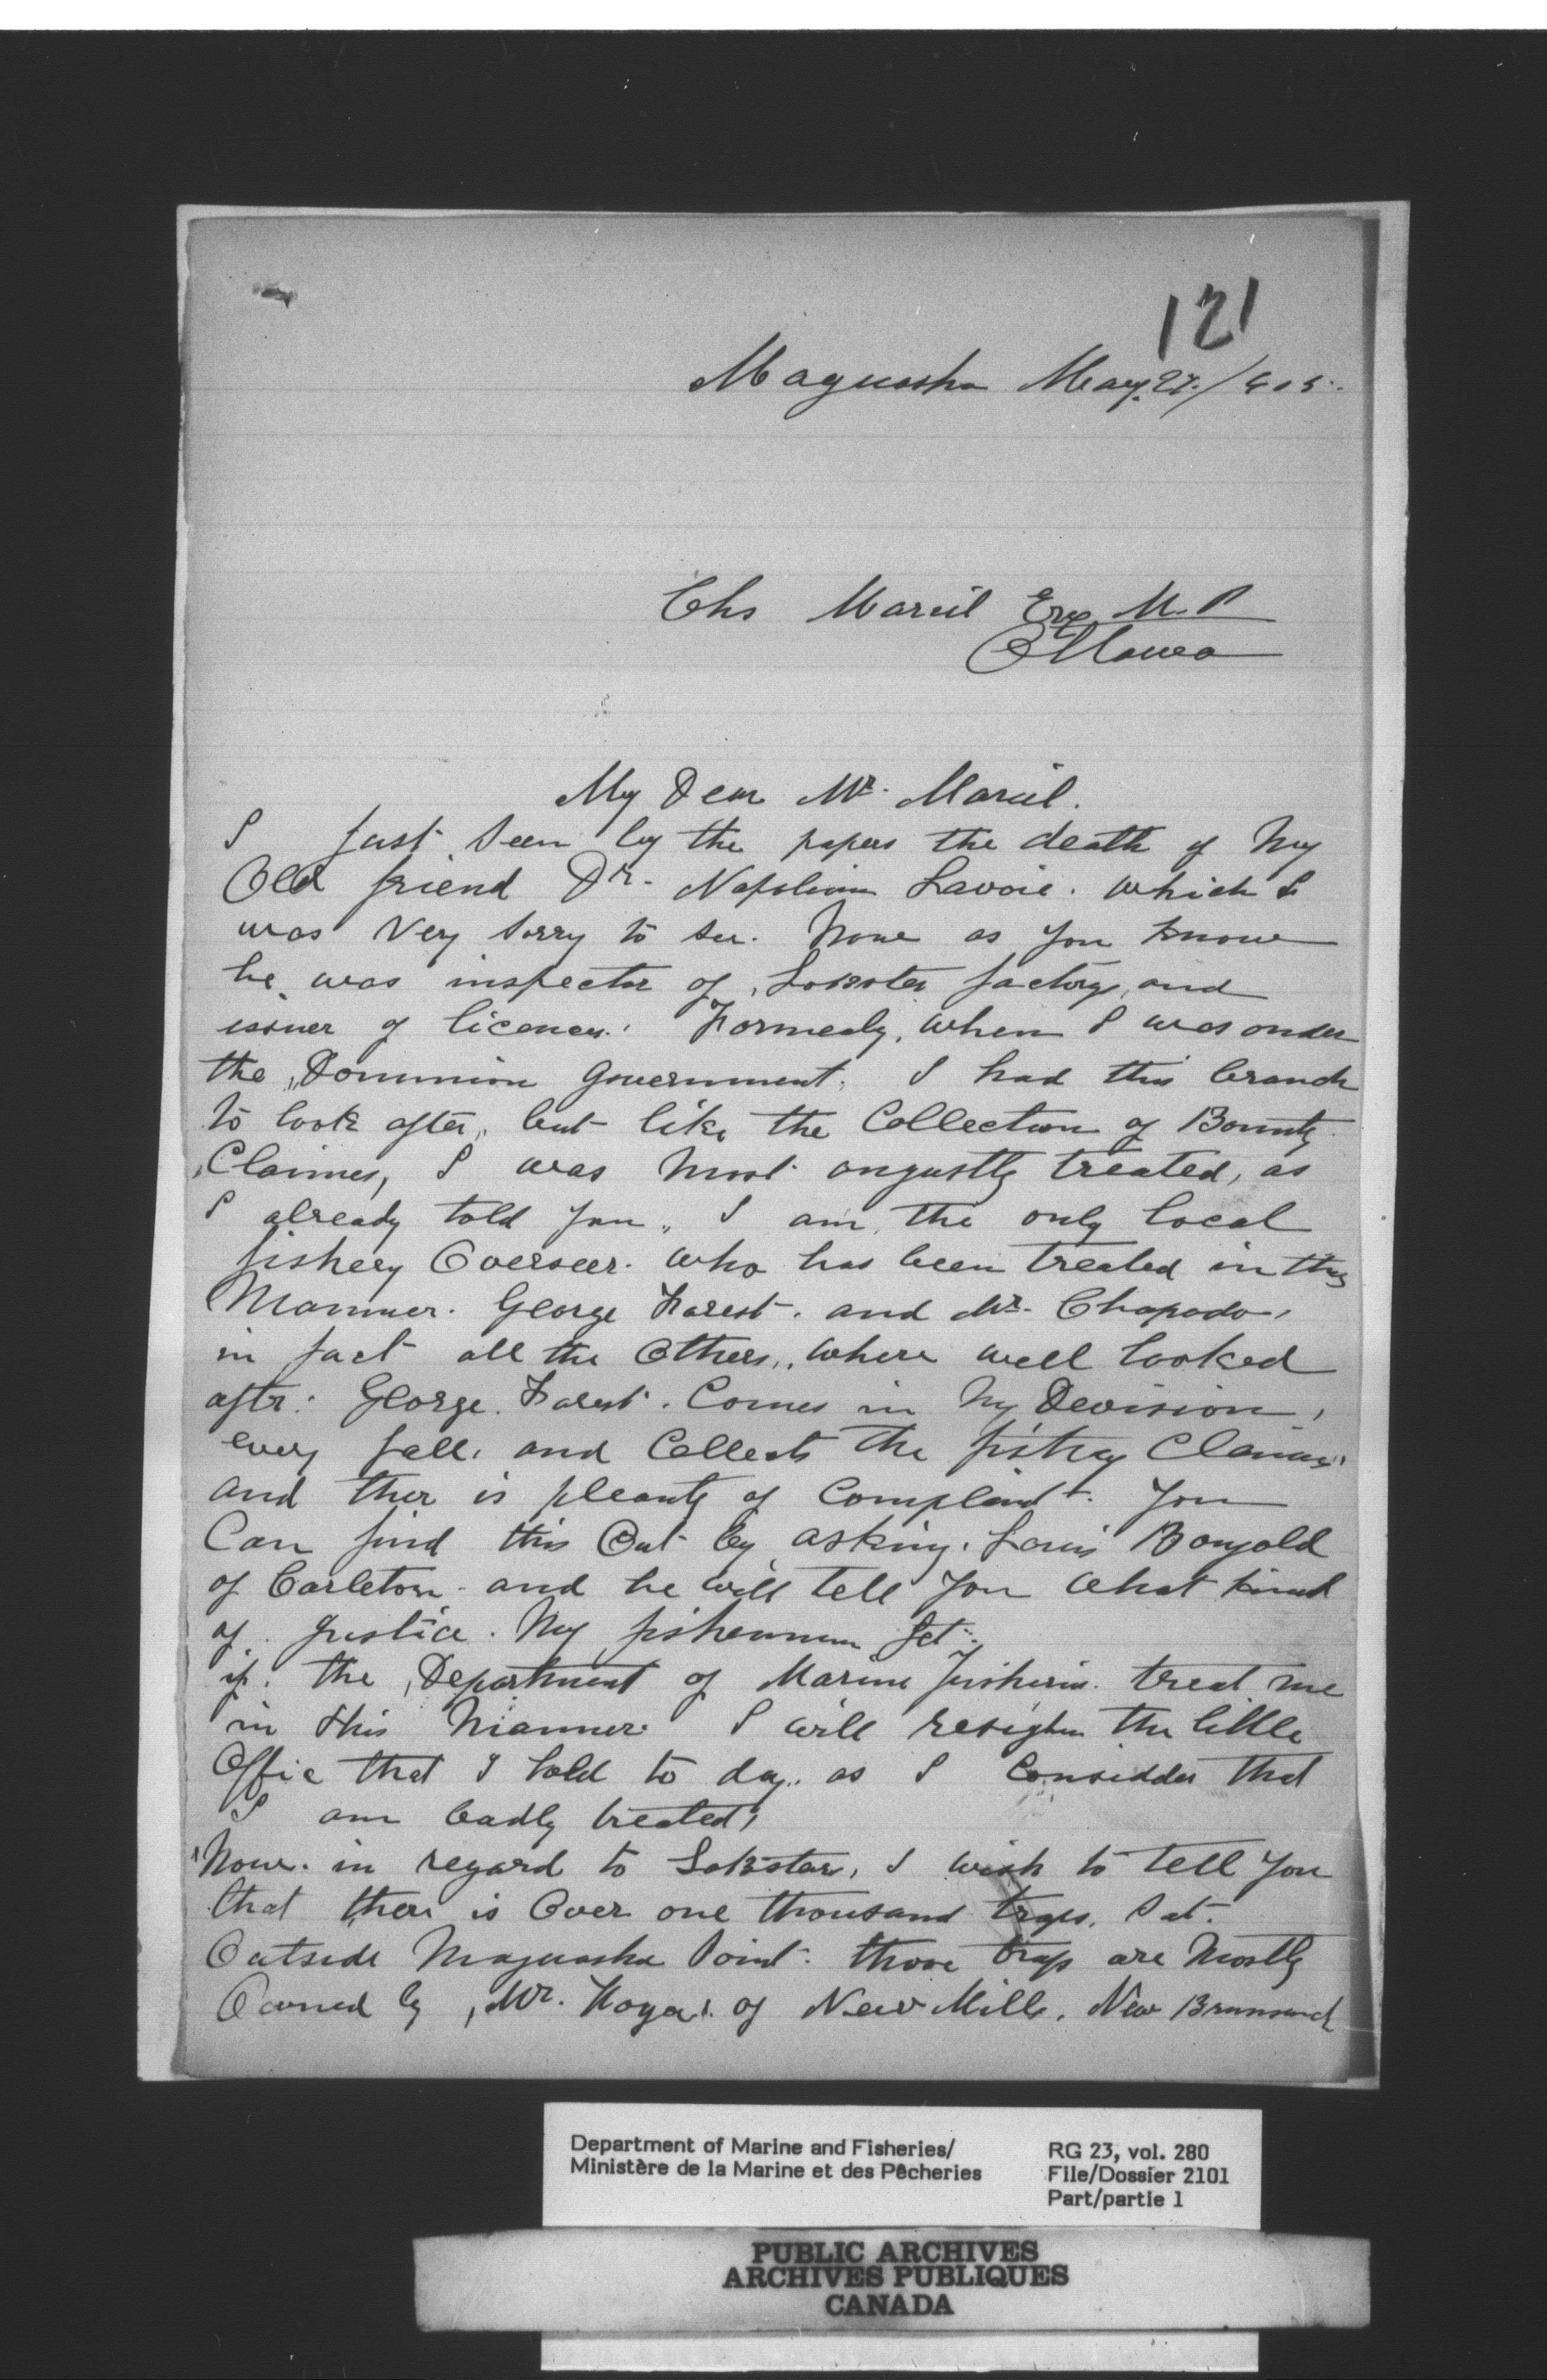 121
Maguasha May 27./905.
Chs Marcil Esq M.P
Ottawa
My Dear Mr. Marcil.
I just seen by the papers the death of My
Old friend Dr. Napolion Lavoie. which I
was Very Sorry to see. Now as you know
he was inspector of Lobster factorys, and
issuer of licences. Formealy, when I was onder
the Dominion Government. I had this branch
to look after, but like the Collection of Bounty
Claimes, I was Most onjustly treated, as
I already told you, I am the only local
fishery Overseer. who has been treated in this
Manner. George Farest. and Mr. Chapado,
in fact all the Others, where well looked
aftr. George Farest. Comes in My Devision,
every fall, and Collects the fishey Claimes,
and ther is pleanty of Complaint. You
Can find this Out by asking. Louis Bonjold
of Carleton. and he will tell you what kind
of justice. My fishermen get.
if the Department of Marine Fisheris. treat me
in this Manner. I will resighn the little
Offic that I hold to day. as I Considder that
I am badly treated,
Now. in regard to Lobster, I wish to tell you
that there is Over one thousand traps. Sat.
Outside Maguasha Point. those traps are Mostly
Owned by, Mr. of New Mills. New Brunswick
Department of Marine and Fisheries/
Ministère de la Marine et des Pêcheries
RG 23, vol. 280
File/Dossier 2101
Part/partie 1
PUBLIC ARCHIVES
ARCHIVES PUBLIQUES
CANADA